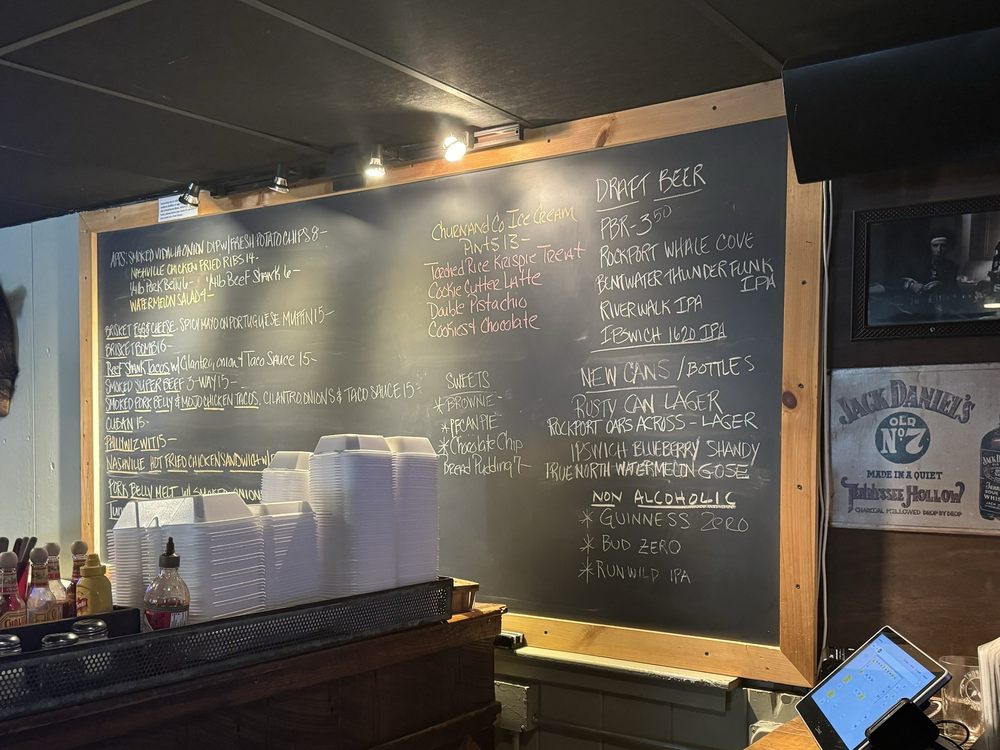 APS: SMOKED VIDALIA ONION DIP W/ FRESH POTATO CHIPS 8-
NASHVILLE CHICKEN FRIED RIBS 14-
1/4lb Pork Belly 6- 1/4lb Beef Shank 6-
WATERMELON SALAD 4-
BRISKET EGG & CHEESE, SPICY MAYO ON PORTUGUESE MUFFIN 15-
BRISKET BOMB 16-
Beef Shank Tacos w/ Cilantro, onion & Taco Sauce 15-
SMOKED SUPER BEEF 3-WAY 15-
SMOKED PORK BELLY & MOJO CHICKEN TACOS, CILANTRO ONIONS & TACO SAUCE 15-
CUBAN 15-
PHILLY WIZ WIT 15-
NASHVILLE HOT FRIED CHICKEN SANDWICH W/
PORK BELLY MELT W/ SMOKED ONIONS
Churn and Co Ice Cream
Pints 13-
Toasted Rice Krispie Treat
Cookie Cutter Latte
Double Pistachio
Cookies & Chocolate
SWEETS
* BROWNIE-
* PECAN PIE
* Chocolate Chip
Bread Pudding 7-
DRAFT BEER
PBR-3.50
ROCKPORT WHALE COVE
BENTWATER THUNDER FUNK
IPA
RIVERWALK IPA
IPSWICH 1620 IPA
NEW CANS / BOTTLES
RUSTY CAN LAGER
ROCKPORT OARS ACROSS - LAGER
IPSWICH BLUEBERRY SHANDY
TRUE NORTH WATERMELON GOSE
NON ALCOHOLIC
* GUINNESS ZERO
* BUD ZERO
* RUN WILD IPA
JACK DANIEL'S
OLD
No. 7
MADE IN A QUIET
Tennessee Hollow
CHARCOAL MELLOWED DROP BY DROP